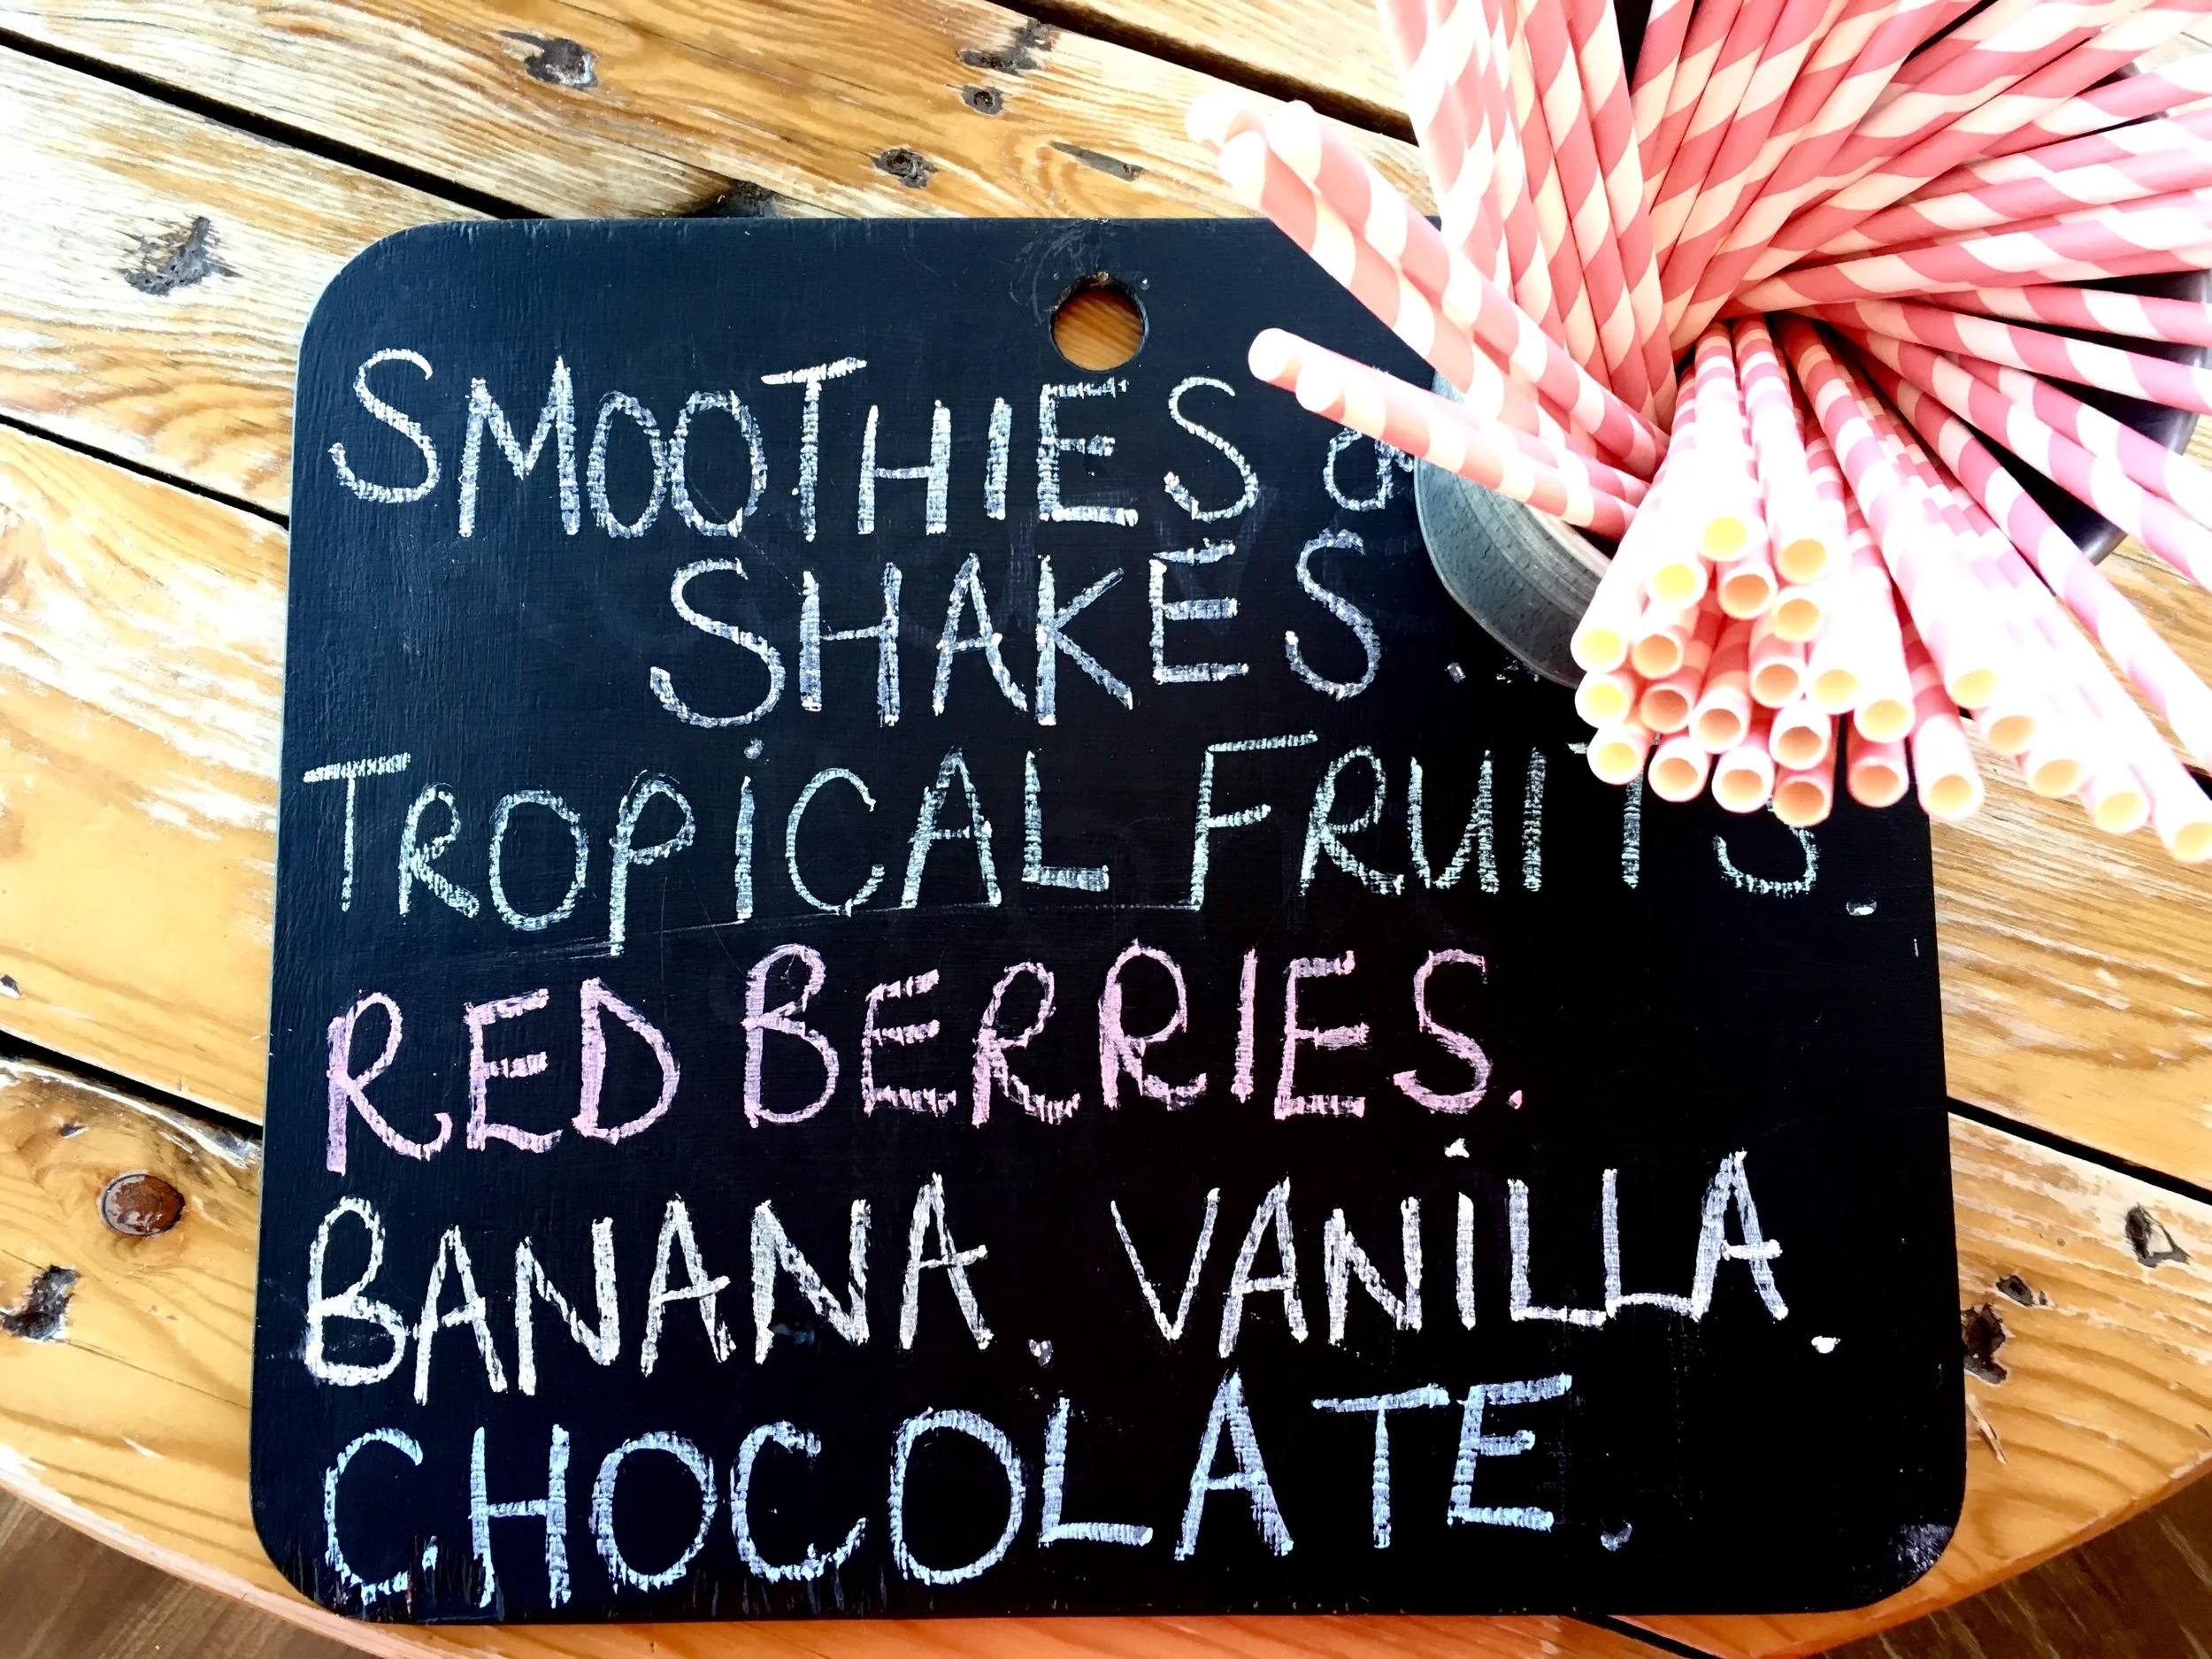 SMOOTHIES &
SHAKES.
TROPICAL FRUITS.
RED BERRIES.
BANANA. VANILLA.
CHOCOLATE.